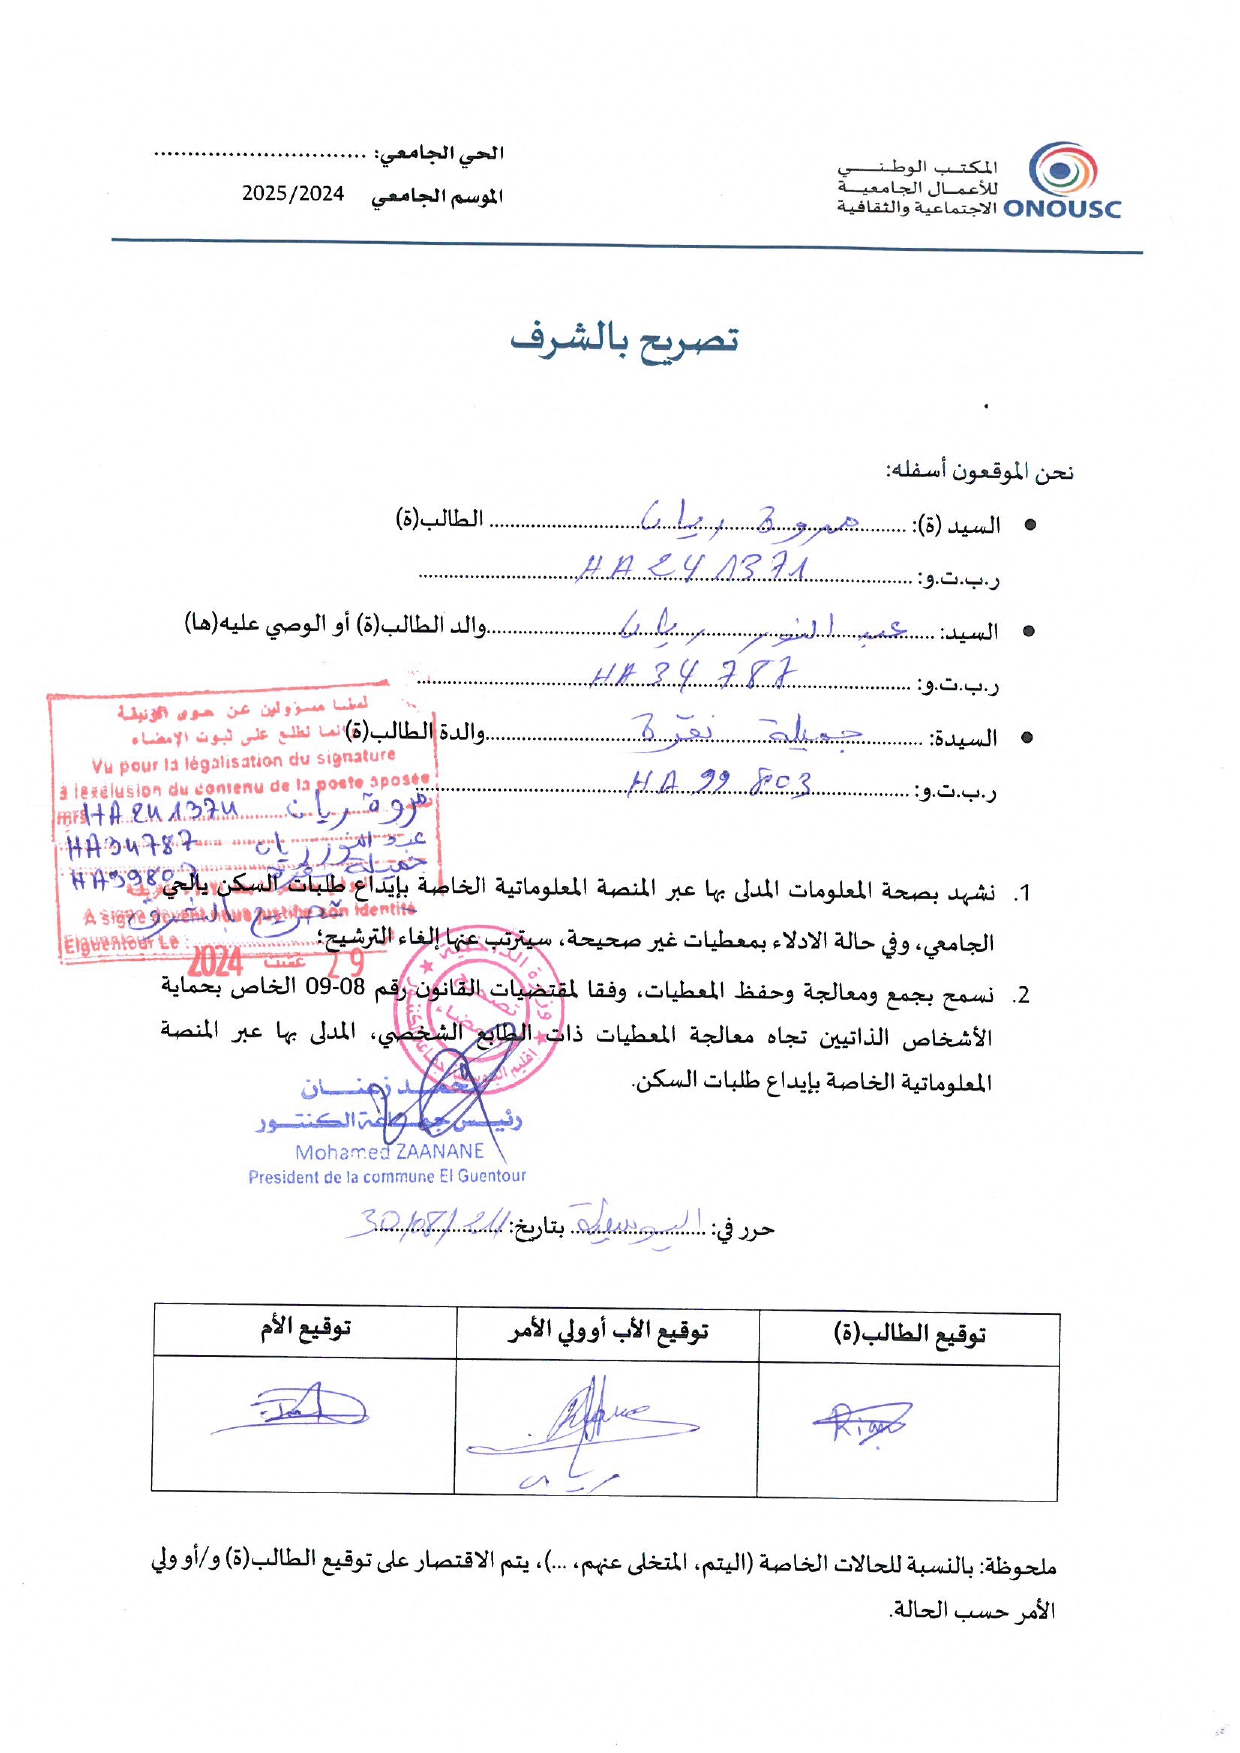 المكتب الوطني
للأعمال الجامعية
الاجتماعية والثقافية
ONOUSC
الحي الجامعي: ..............................
الموسم الجامعي 2025/2024
تصريح بالشرف
نحن الموقعون أسفله:
• السيد (ة): مروة ريان الطالب(ة)
ر.ب.ت.و: HA241371
• السيد: عبد النور ريان والد الطالب(ة) أو الوصي عليه(ها)
ر.ب.ت.و: HA34787
• السيدة: جميلة نقرة والدة الطالب(ة)
ر.ب.ت.و: HA99803
لسنا مسؤولين عن
إنما نطلع على ثبوت الإمضاء
Vu pour la légalisation du signature
à lexélusion du contenu de la poste aposée
HA241371 مروة ريان
HA34787 عبد النور ريان
جميلة
تصريح بالشرف
Elguentour Le :
29 غشت 2024
1. نشهد بصحة المعلومات المدلى بها عبر المنصة المعلوماتية الخاصة بإيداع طلبات السكن بالحي
الجامعي، وفي حالة الادلاء بمعطيات غير صحيحة، سيترتب عنها إلغاء الترشيح؛
2. نسمح بجمع ومعالجة وحفظ المعطيات، وفقا لمقتضيات القانون رقم 08-09 الخاص بحماية
الأشخاص الذاتيين تجاه معالجة المعطيات ذات الطابع الشخصي، المدلى بها عبر المنصة
المعلوماتية الخاصة بإيداع طلبات السكن.
محمد زعنان
رئيس جماعة الكنتور
Mohamed ZAANANE
President de la commune El Guentour
حرر في: اليوسفية بتاريخ: 30/08/24
توقيع الطالب(ة) توقيع الأب أو ولي الأمر توقيع الأم
ريان
ملحوظة: بالنسبة للحالات الخاصة (اليتم، المتخلى عنهم، ...)، يتم الاقتصار على توقيع الطالب(ة) و/أو ولي
الأمر حسب الحالة.